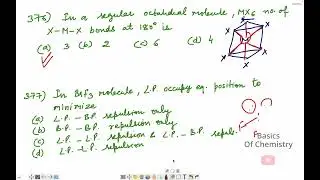 376) In a regular octahedral molecule, MX6 no. of
X-M-X bonds at 180° is
(a) 3 (b) 2 (c) 6 (d) 4
X
X
X
X
X
X
377) In BrF3 molecule, L.P. occupy eq. position to
minimize
(a) L.P. - B.P. repulsion only
(b) B.P. - B.P. repulsion only
(c) L.P. - L.P. repulsion & L.P. - B.P. repuls.
(d) L.P. - L.P. repulsion
Basics
Of Chemistry